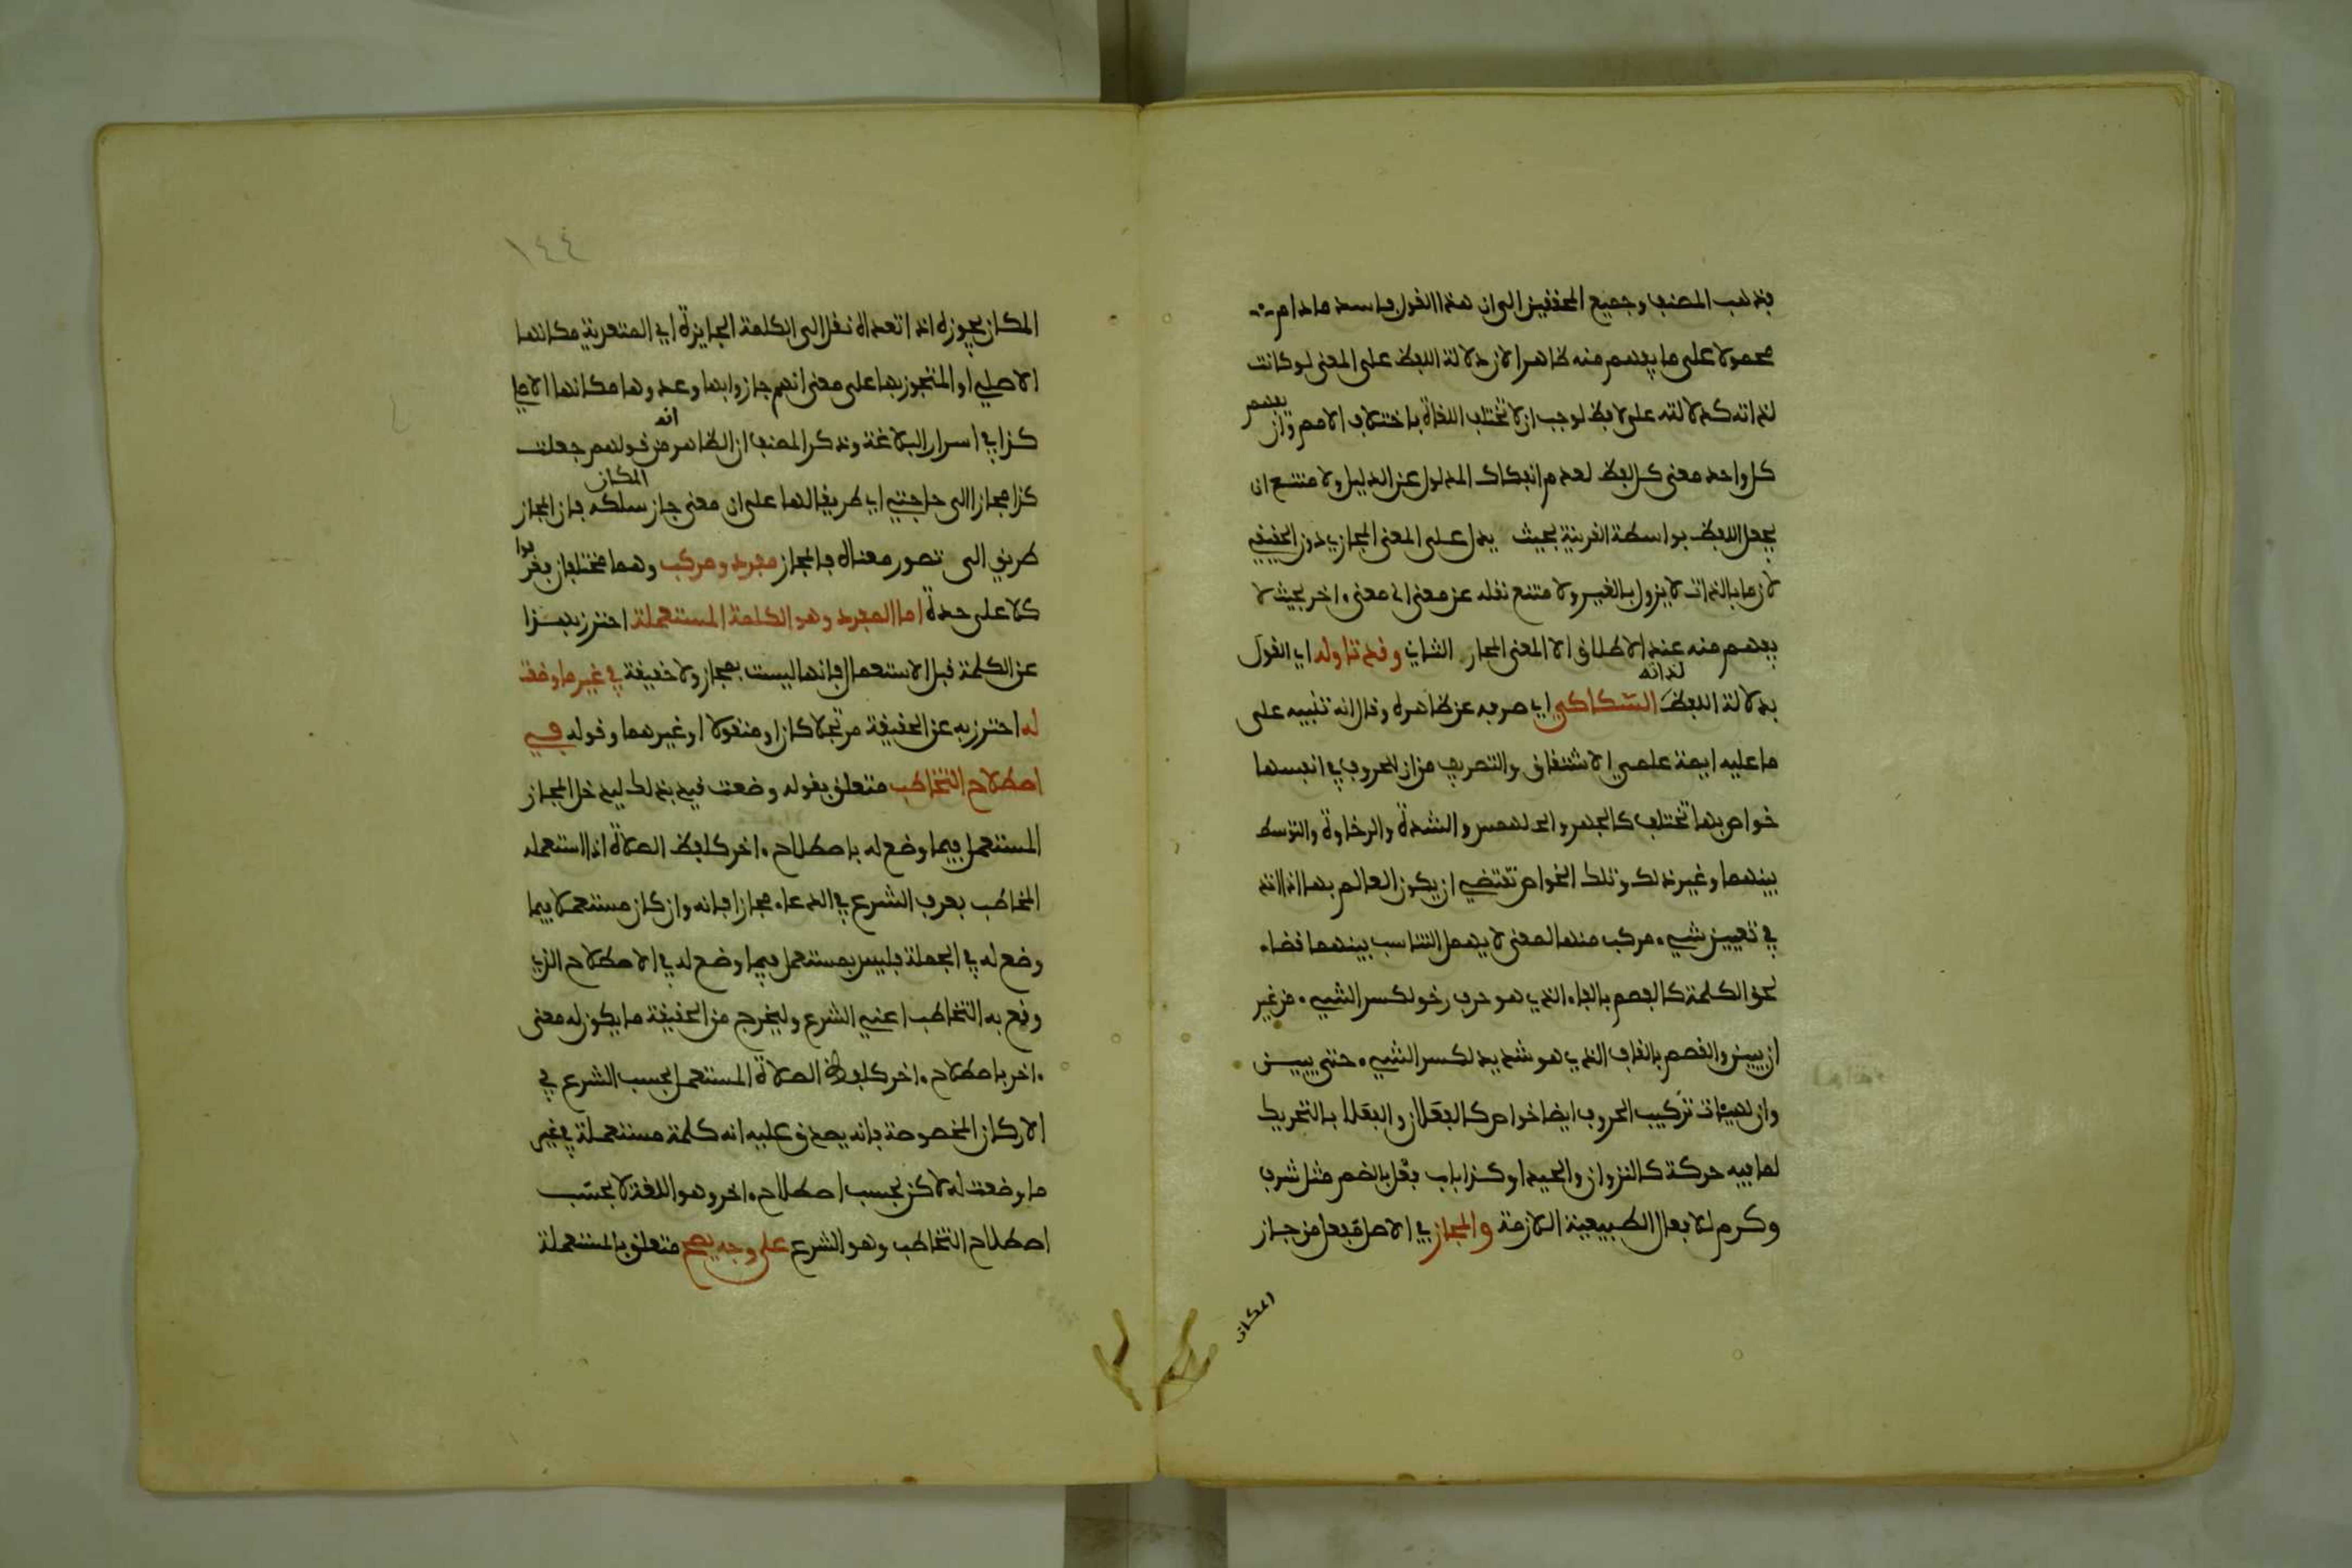 فذهب المصنف وجميع المحققين الى ان هذا القول فاسد مادام
محمولا على ما يفهم منه ظاهرا لان دلالة اللفظ على المعنى لو كانت
لذاته كدلالته على لافظ لوجب ان لا تختلف اللغاة باختلاف الامم وان يفهم
كل واحد معنى كل لفظ لعدم انفكاك المدلول عن الدليل ولا متنع ان
يجعل اللفظ بواسطة القرينة بحيث يدل على المعنى المجازي دون الحقيقي
لان ما بالذات لا يزول بالغير ولا متنع نقله عن معنى الى معنى اخر بحيث لا
يفهم منه عند الاطلاق الا المعنى المجاز الثاني وقد تاوله اي القول
بدلالة اللفظ لذاته السكاكي اي صرفه عن ظاهره وقال انه تنبيه على
ما عليه ايمة علمي الاشتقاق والتصريف من ان للحروف في انفسها
خواص بها تختلف كالجهر والهمس والشدة والرخاوة والتوسط
بينهما وغير ذلك وتلك الخواص تقتضي ان يكون العالم بها اذا اخذ
في تعيين شيء مركب منها لمعنى لا يهمل التناسب بينهما قضاء
لحق الكلمة كالفصم بالفاء الذي هو حرف رخو لكسر الشيء من غير
ان يبين والقصم بالقاف الذي هو شديد لكسر الشيء حتى يبين
وان لهيئات تركيب الحروف ايضا خواص كالفعلان والفعلا بالتحريك
لما فيه حركة كالنزوان والحيدا وكذا باب فعل بالضم مثل شرف
وكرم للافعال الطبيعية اللازمة والمجاز في الاصل مفعل من جاز
المكان
١٤٤
المكان يجوزه اذا تعداه نقل الى الكلمة الجايزة اي المتعدية مكانها
الاصلي او المتجوز بها على معنى انهم جازوا بها وعدوها مكانها الاصلي
كذا في اسرار البلاغة وذكر المصنف ان الظاهر انه من قولهم جعلت
كذا مجازا الى حاجتي اي طريقا لها على ان معنى جاز المكان سلكه فان المجاز
طريق الى تصور معناه فالمجاز مفرد ومركب وهما مختلفان فعرفوا
كلا على حدة اما المفرد وهو الكلمة المستعملة احترز بهذا
عن الكلمة قبل الاستعمال فانها ليست بمجاز ولا حقيقة في غير ما وضعت
له احترز به عن الحقيقة مرتجلا كان او منقولا او غيرهما وقوله في
اصطلاح التخاطب متعلق بقوله وضعت قيد بذلك ليدخل المجاز
المستعمل فيما وضع له باصطلاح اخر كلفظ الصلاة اذا استعمله
المخاطب بعرف الشرع في الدعاء مجازا فانه وان كان مستعملا فيما
وضع له في الجملة فليس بمستعمل فيما وضع له في الاصطلاح الذي
وقع به التخاطب اعني الشرع وليخرج من الحقيقة ما يكون له معنى
اخر باصطلاح اخر كلفظ الصلاة المستعمل بحسب الشرع في
الاركان المخصوصة فانه يصدق عليه انه كلمة مستعملة في غير
ما وضعت له لاكن بحسب اصطلاح اخر وهو اللغة لا بحسب
اصطلاح التخاطب وهو الشرع على وجه يصح متعلق بالمستعملة